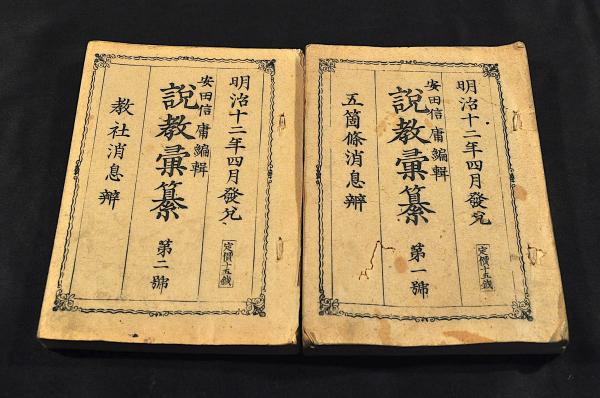 明治十二年四月發兌
安田信庸編輯
說教彙纂 第一號
五箇條消息辨
定價十五錢
明治十二年四月發兌
安田信庸編輯
說教彙纂 第二號
教社消息辨
定價十五錢